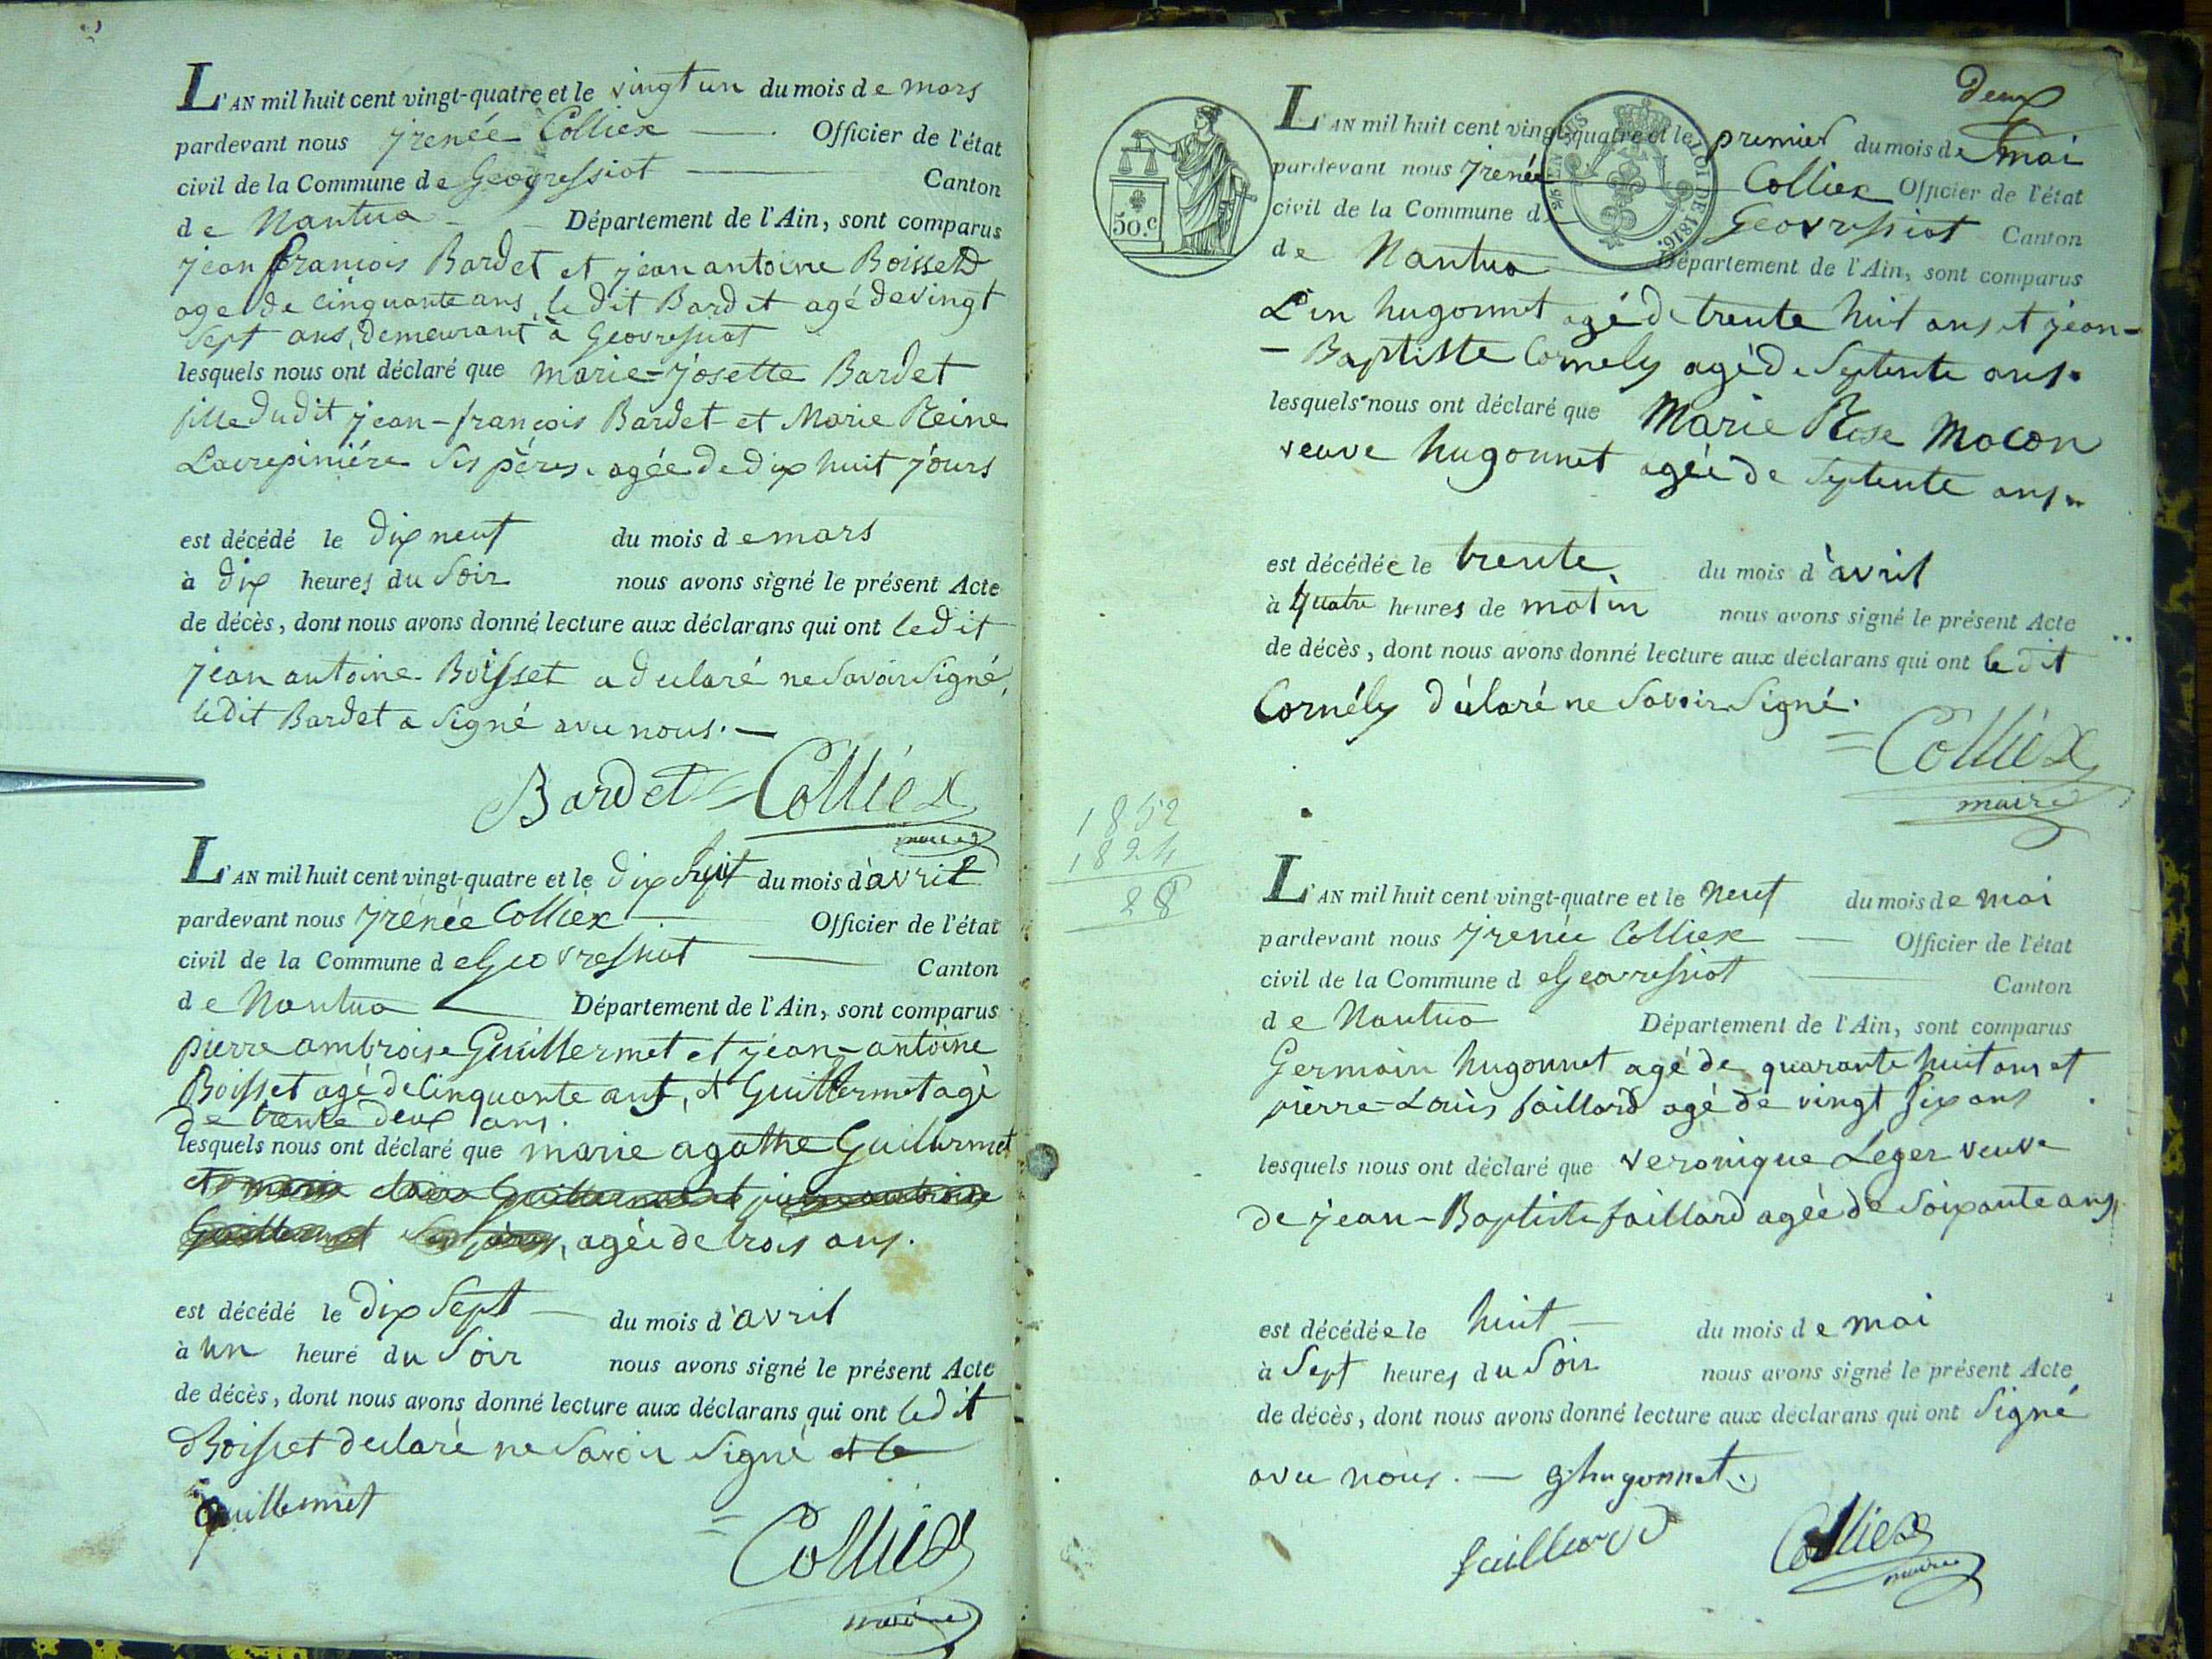 L'AN mil huit cent vingt-quatre et le vingt un du mois de mars
pardevant nous jrenée Colliex — Officier de l'état
civil de la Commune de Geovressiat — Canton
de Nantua — Département de l'Ain, sont comparus
jean françois Bardet et jean antoine Boisset
age de cinquante ans, ledit Bardet agé de vingt
sept ans, demeurant à Geovressiat
lesquels nous ont déclaré que marie-josette Bardet
fille dudit jean-françois Bardet et Marie Reine
ses pères. agée de dix huit jours
est décédé le dix neuf du mois de mars
à dix heures du soir nous avons signé le présent Acte
de décès, dont nous avons donné lecture aux déclarans qui ont ledit
jean antoine Boisset a déclaré ne savoir signé,
ledit Bardet a signé avec nous. —
Bardet = Colliex
maire
L'AN mil huit cent vingt-quatre et le dix huit du mois d'avril
pardevant nous jrénée Colliex — Officier de l'état
civil de la Commune de Geovressiat — Canton
de Nantua — Département de l'Ain, sont comparus
pierre ambroise Guillermet et jean-antoine
Boisset agé de cinquante ans, et Guillermet agé
de trente deux ans.
lesquels nous ont déclaré que marie agathe Guillermet
agée de trois ans.
est décédé le dix sept — du mois d'avril
à un heure du soir nous avons signé le présent Acte
de décès, dont nous avons donné lecture aux déclarans qui ont ledit
Boisset declaré ne savoir signé et le
Guillermet
= Colliex
maire
deux
50.c
LOI DE 1816.
L'AN mil huit cent vingt-quatre et le premier du mois de mai
pardevant nous jrénée Colliex Officier de l'état
civil de la Commune de Geovressiat Canton
de Nantua Département de l'Ain, sont comparus
Lin hugonnet agé de trente huit ans et jean-
- Baptiste Cornély agé de septente ans.
lesquels nous ont déclaré que Marie Rose Macon
veuve hugonnet agée de septente ans.
est décédée le trente du mois d'avril
à quatre heures de matin nous avons signé le présent Acte
de décès, dont nous avons donné lecture aux déclarans qui ont le dit
Cornély déclaré ne savoir signé.
= Colliex
maire
1852
1824
28
L'AN mil huit cent vingt-quatre et le neuf du mois de mai
pardevant nous jrenée Colliex — Officier de l'état
civil de la Commune de Geovressiat — Canton
de Nantua Département de l'Ain, sont comparus
Germain hugonnet agé de quarante huit ans et
pierre-Louis faillard agé de vingt six ans
lesquels nous ont déclaré que veronique Leger veuve
de jean-Baptiste faillard agée de soixante ans,
est décédée le huit — du mois de mai
à sept heures du soir nous avons signé le présent Acte
de décès, dont nous avons donné lecture aux déclarans qui ont signé
avec nous. — g hugonnet
faillard Colliex
maire